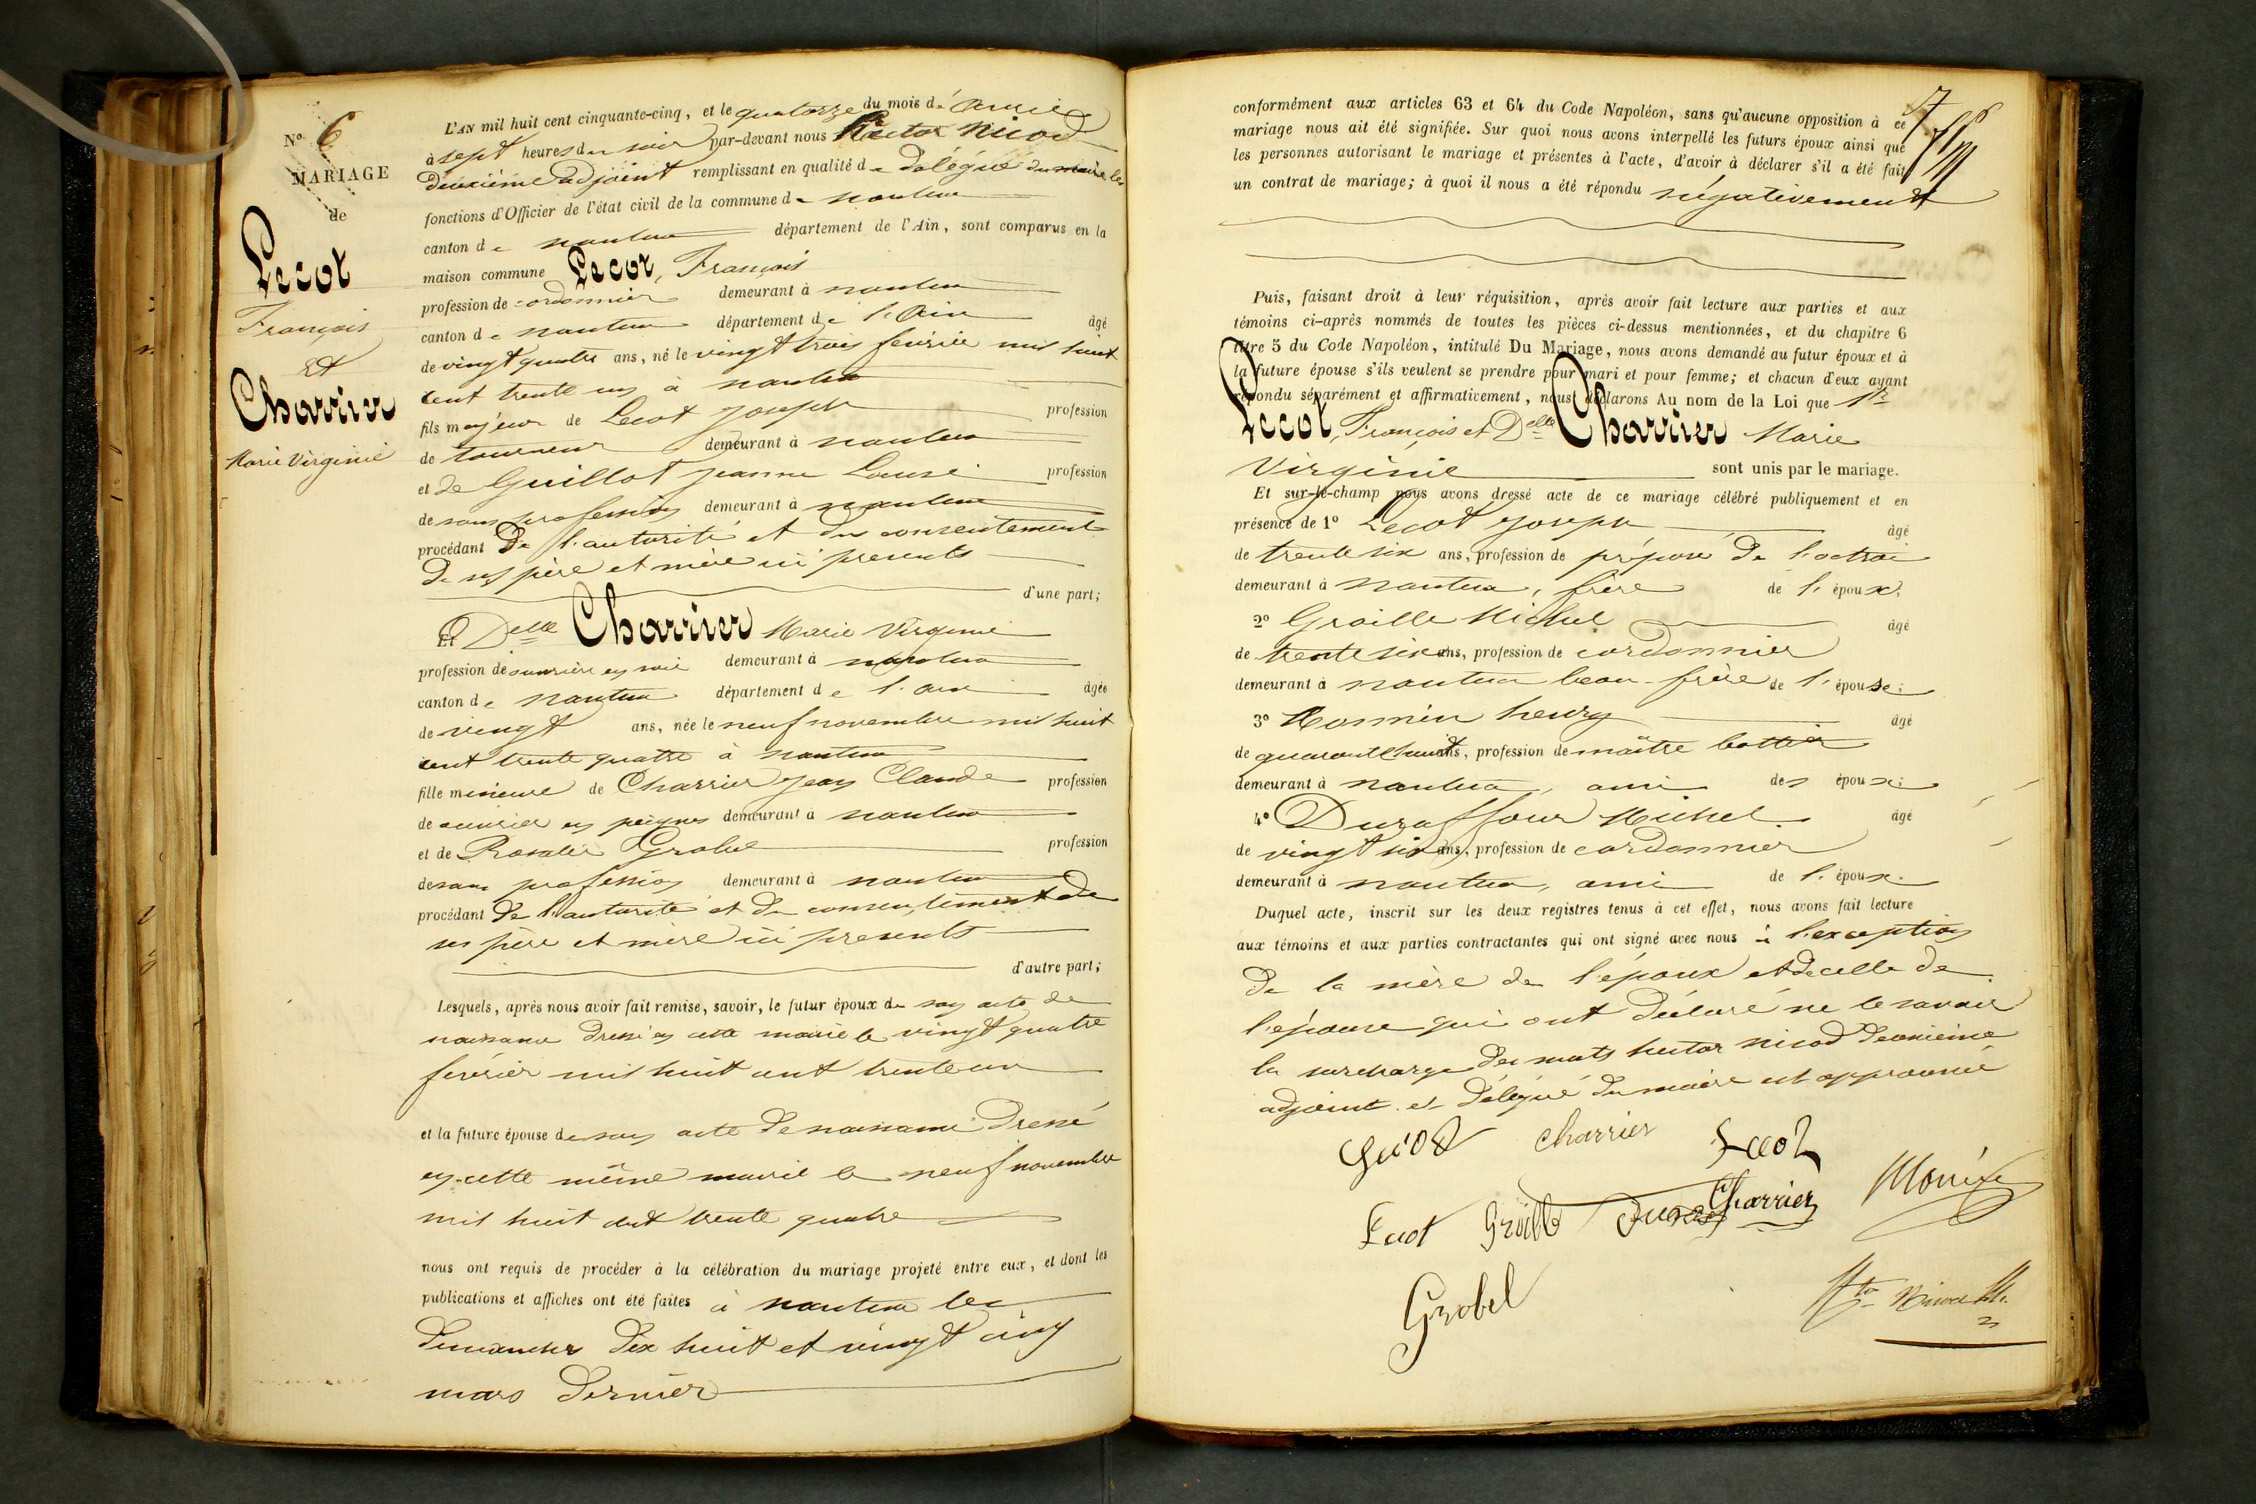 N.º 6
MARIAGE
de
Lecot
François
Et
Charrier
Marie Virginie
L'AN mil huit cent cinquante-cinq, et le quatorze du mois d'avril
à sept heures du soir par-devant nous Hector Nicod
deuxième adjoint remplissant en qualité de délégué du maire les
fonctions d'Officier de l'état civil de la commune de nantua
canton de nantua département de l'Ain, sont comparus en la
maison commune Lecot, François
profession de cordonnier demeurant à nantua
canton de nantua département de l'Ain âgé
de vingt quatre ans, né le vingt trois février mil huit
cent trente un à nantua
fils majeur de Lecot Joseph profession
de tourneur demeurant à nantua
et de Guillot Jeanne Louise profession
de sans profession demeurant à nantua
procédant De l'autorité et du consentement
de ses père et mère ici presents
d'une part;
Et Delle Charrier Marie Virginie
profession de ouvrière en soie demeurant à nantua
canton de nantua département de l'ain âgée
de vingt ans, née le neuf novembre mil huit
cent trente quatre à nantua
fille mineure de Charrier Jean Claude profession
de ouvrier en peignes demeurant à nantua
et de Rosalie Grobel profession
de sans profession demeurant à nantua
procédant de l'autorité et du consentement de
ses père et mère ici presents
d'autre part;
Lesquels, après nous avoir fait remise, savoir, le futur époux de son acte de
naissance dressé en cette mairie le vingt quatre
février mil huit cent trente un
et la future épouse de son acte de naissance dressé
en cette même mairie le neuf novembre
mil huit cent trente quatre
nous ont requis de procéder à la célébration du mariage projeté entre eux, et dont les
publications et affiches ont été faites à nantua les
dimanches dix huit et vingt cinq
mars dernier
7
conformément aux articles 63 et 64 du Code Napoléon, sans qu'aucune opposition à ce
mariage nous ait été signifiée. Sur quoi nous avons interpellé les futurs époux ainsi que
les personnes autorisant le mariage et présentes à l'acte, d'avoir à déclarer s'il a été fait
un contrat de mariage; à quoi il nous a été répondu négativement
Puis, faisant droit à leur réquisition, après avoir fait lecture aux parties et aux
témoins ci-après nommés de toutes les pièces ci-dessus mentionnées, et du chapitre 6
titre 5 du Code Napoléon, intitulé Du Mariage, nous avons demandé au futur époux et à
la future épouse s'ils veulent se prendre pour mari et pour femme; et chacun d'eux ayant
répondu séparément et affirmativement, nous déclarons Au nom de la Loi que Sr
Lecot, François et Delle Charrier Marie
Virginie sont unis par le mariage.
Et sur-le-champ nous avons dressé acte de ce mariage célébré publiquement et en
présence de 1º Lecot Joseph âgé
de trente six ans, profession de préposé de l'octroi
demeurant à nantua, frère de l'époux;
2º Graille Michel âgé
de trente six ans, profession de cordonnier
demeurant à nantua beau-frère de l'épouse;
3º Monnin henry âgé
de quarante huit ans, profession de maître bottier
demeurant à nantua, ami des époux;
4º Duraffour Michel. âgé
de vingt six ans, profession de cordonnier
demeurant à nantua, ami de l'époux.
Duquel acte, inscrit sur les deux registres tenus à cet effet, nous avons fait lecture
aux témoins et aux parties contractantes qui ont signé avec nous à l'exception
de la mère de l'époux et de celle de
l'épouse qui ont déclaré ne le savoir
la surcharge des mots hector nicod deuxième
adjoint et délégué du maire est approuvée
Charrier Lecot
Lecot Charrier
Grobel